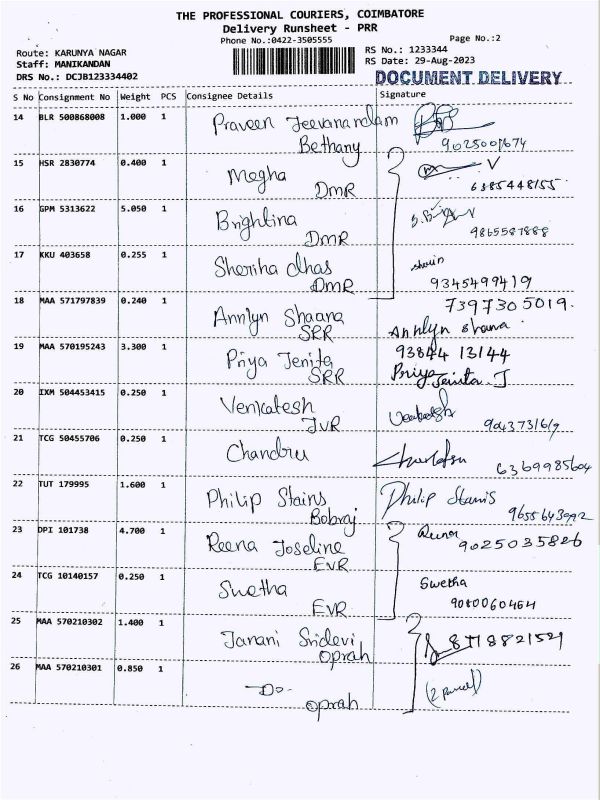 THE PROFESSIONAL COURIERS, COIMBATORE
Delivery Runsheet - PRR
Phone No.:0422-3505555
Page No.:2
Route: KARUNYA NAGAR
RS No.: 1233344
Staff: MANIKANDAN
RS Date: 29-Aug-2023
DRS No.: DCJB123334402
DOCUMENT DELIVERY
S No Consignment No Weight PCS Consignee Details Signature
14 BLR 500868008 1.000 1 Praveen Jeevanandam
Bethany 9025001674
15 HSR 2830774 0.400 1 Megha
DMR 6385448155
16 GPM 5313622 5.050 1 Brightina
DMR 9865587888
17 KKU 403658 0.255 1 Sheriha dhas
DMR 9345499419
18 MAA 571797839 0.240 1 Annlyn Shaana 7397305019.
SRR Annlyn Shana
19 MAA 570195243 3.300 1 Priya Jenita 93844 13144
SRR Priya Jenita. J
20 IXM 504453415 0.250 1 Venkatesh
JVR
21 TCG 50455706 0.250 1 Chandru
6369985604
22 TUT 179995 1.600 1 Philip Stains Philip Stanis
Bobraj
23 DPI 101738 4.700 1 Reena Joseline
EVR 9025035826
24 TCG 10140157 0.250 1 Swetha Swetha
EVR 9080060464
25 MAA 570210302 1.400 1 Janani Sridevi
Oprah
26 MAA 570210301 0.850 1 -Do- (2 parcel)
Oprah